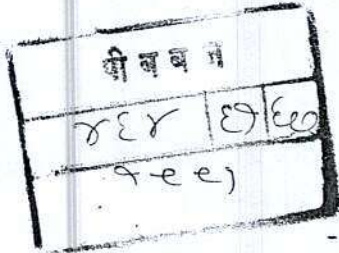 पीबबन
४६४ ६१ ६७
१९९१